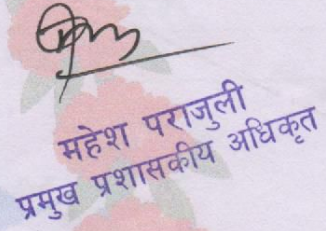 महेश पराजुली
प्रमुख प्रशासकीय अधिकृत